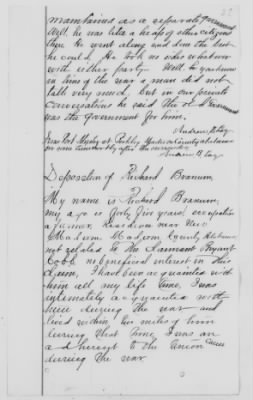 maintained as a separate government
Well, he was like a heap of other citizens
then. He went along and done the best
he could. He took no sides whatever
with either party. Well to questions
in time of the war a man did not
talk very much, but in our private
conversations he said the old Government
was the government for him.
Deposition of Richard Branum
My name is Richard Branum,
my age is forty five years, occupation
a farmer, Residence near New
Madison County Alabama,
not related to the claimant Bryant
Cobb no beneficial interest in this
claim, I have been acquainted with
him all my life time, I was
intimately acquainted with
him during the war and
lived within two miles of him
during that time, I was an
adherent to the Union cause
during the war